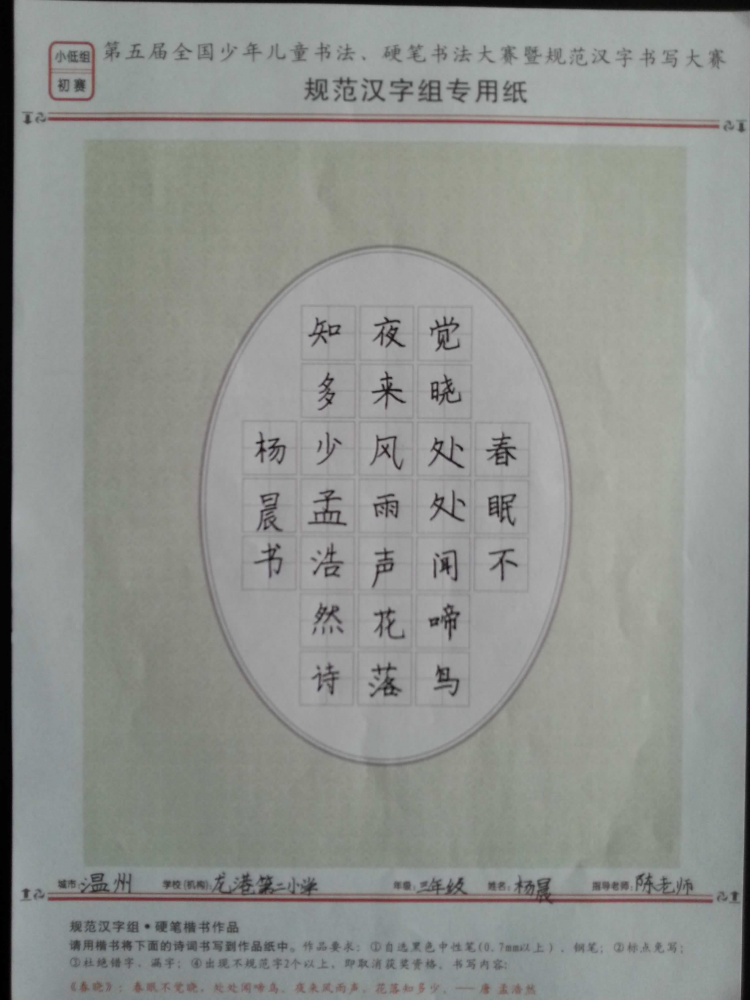 小低组
初赛
第五届全国少年儿童书法、硬笔书法大赛暨规范汉字书写大赛
规范汉字组专用纸
春眠不
觉晓处处闻啼鸟
夜来风雨声花落
知多少孟浩然诗
杨晨书
城市:温州 学校(机构):龙港第二小学 年级:三年级 姓名:杨晨 指导老师:陈老师
规范汉字组•硬笔楷书作品
请用楷书将下面的诗词书写到作品纸中。作品要求:①自选黑色中性笔(0.7mm以上)、钢笔;②标点免写;
③杜绝错字、漏字;④出现不规范字2个以上,即取消获奖资格。书写内容:
《春晓》:春眠不觉晓,处处闻啼鸟。夜来风雨声,花落知多少。——唐 孟浩然